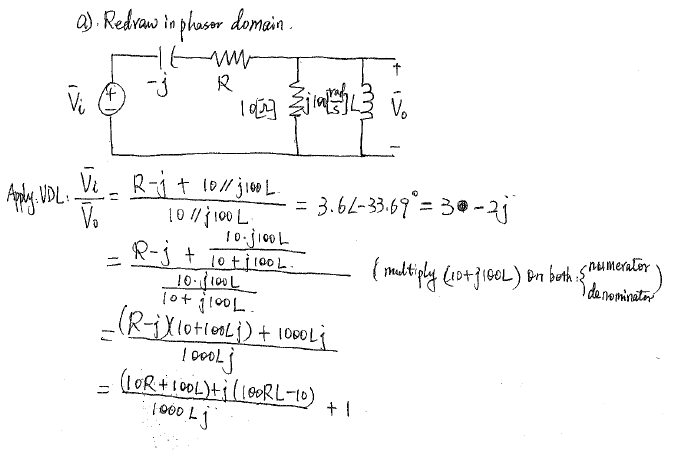 a). Redraw in phasor domain.
-j
R
+
V̄i
+
-
10[Ω]
j100[rad/s]L
V̄o
-
Apply VDL: V̄i/V̄o = (R-j + 10//j100L)/(10//j100L) = 3.6∠-33.69° = 3 - 2j
= (R-j + (10·j100L)/(10+j100L))/((10·j100L)/(10+j100L)) (multiply (10+j100L) on both: {numerator denominator)
= ((R-j)(10+100Lj) + 1000Lj)/(1000Lj)
= ((10R+100L)+j(100RL-10))/(1000Lj) + 1